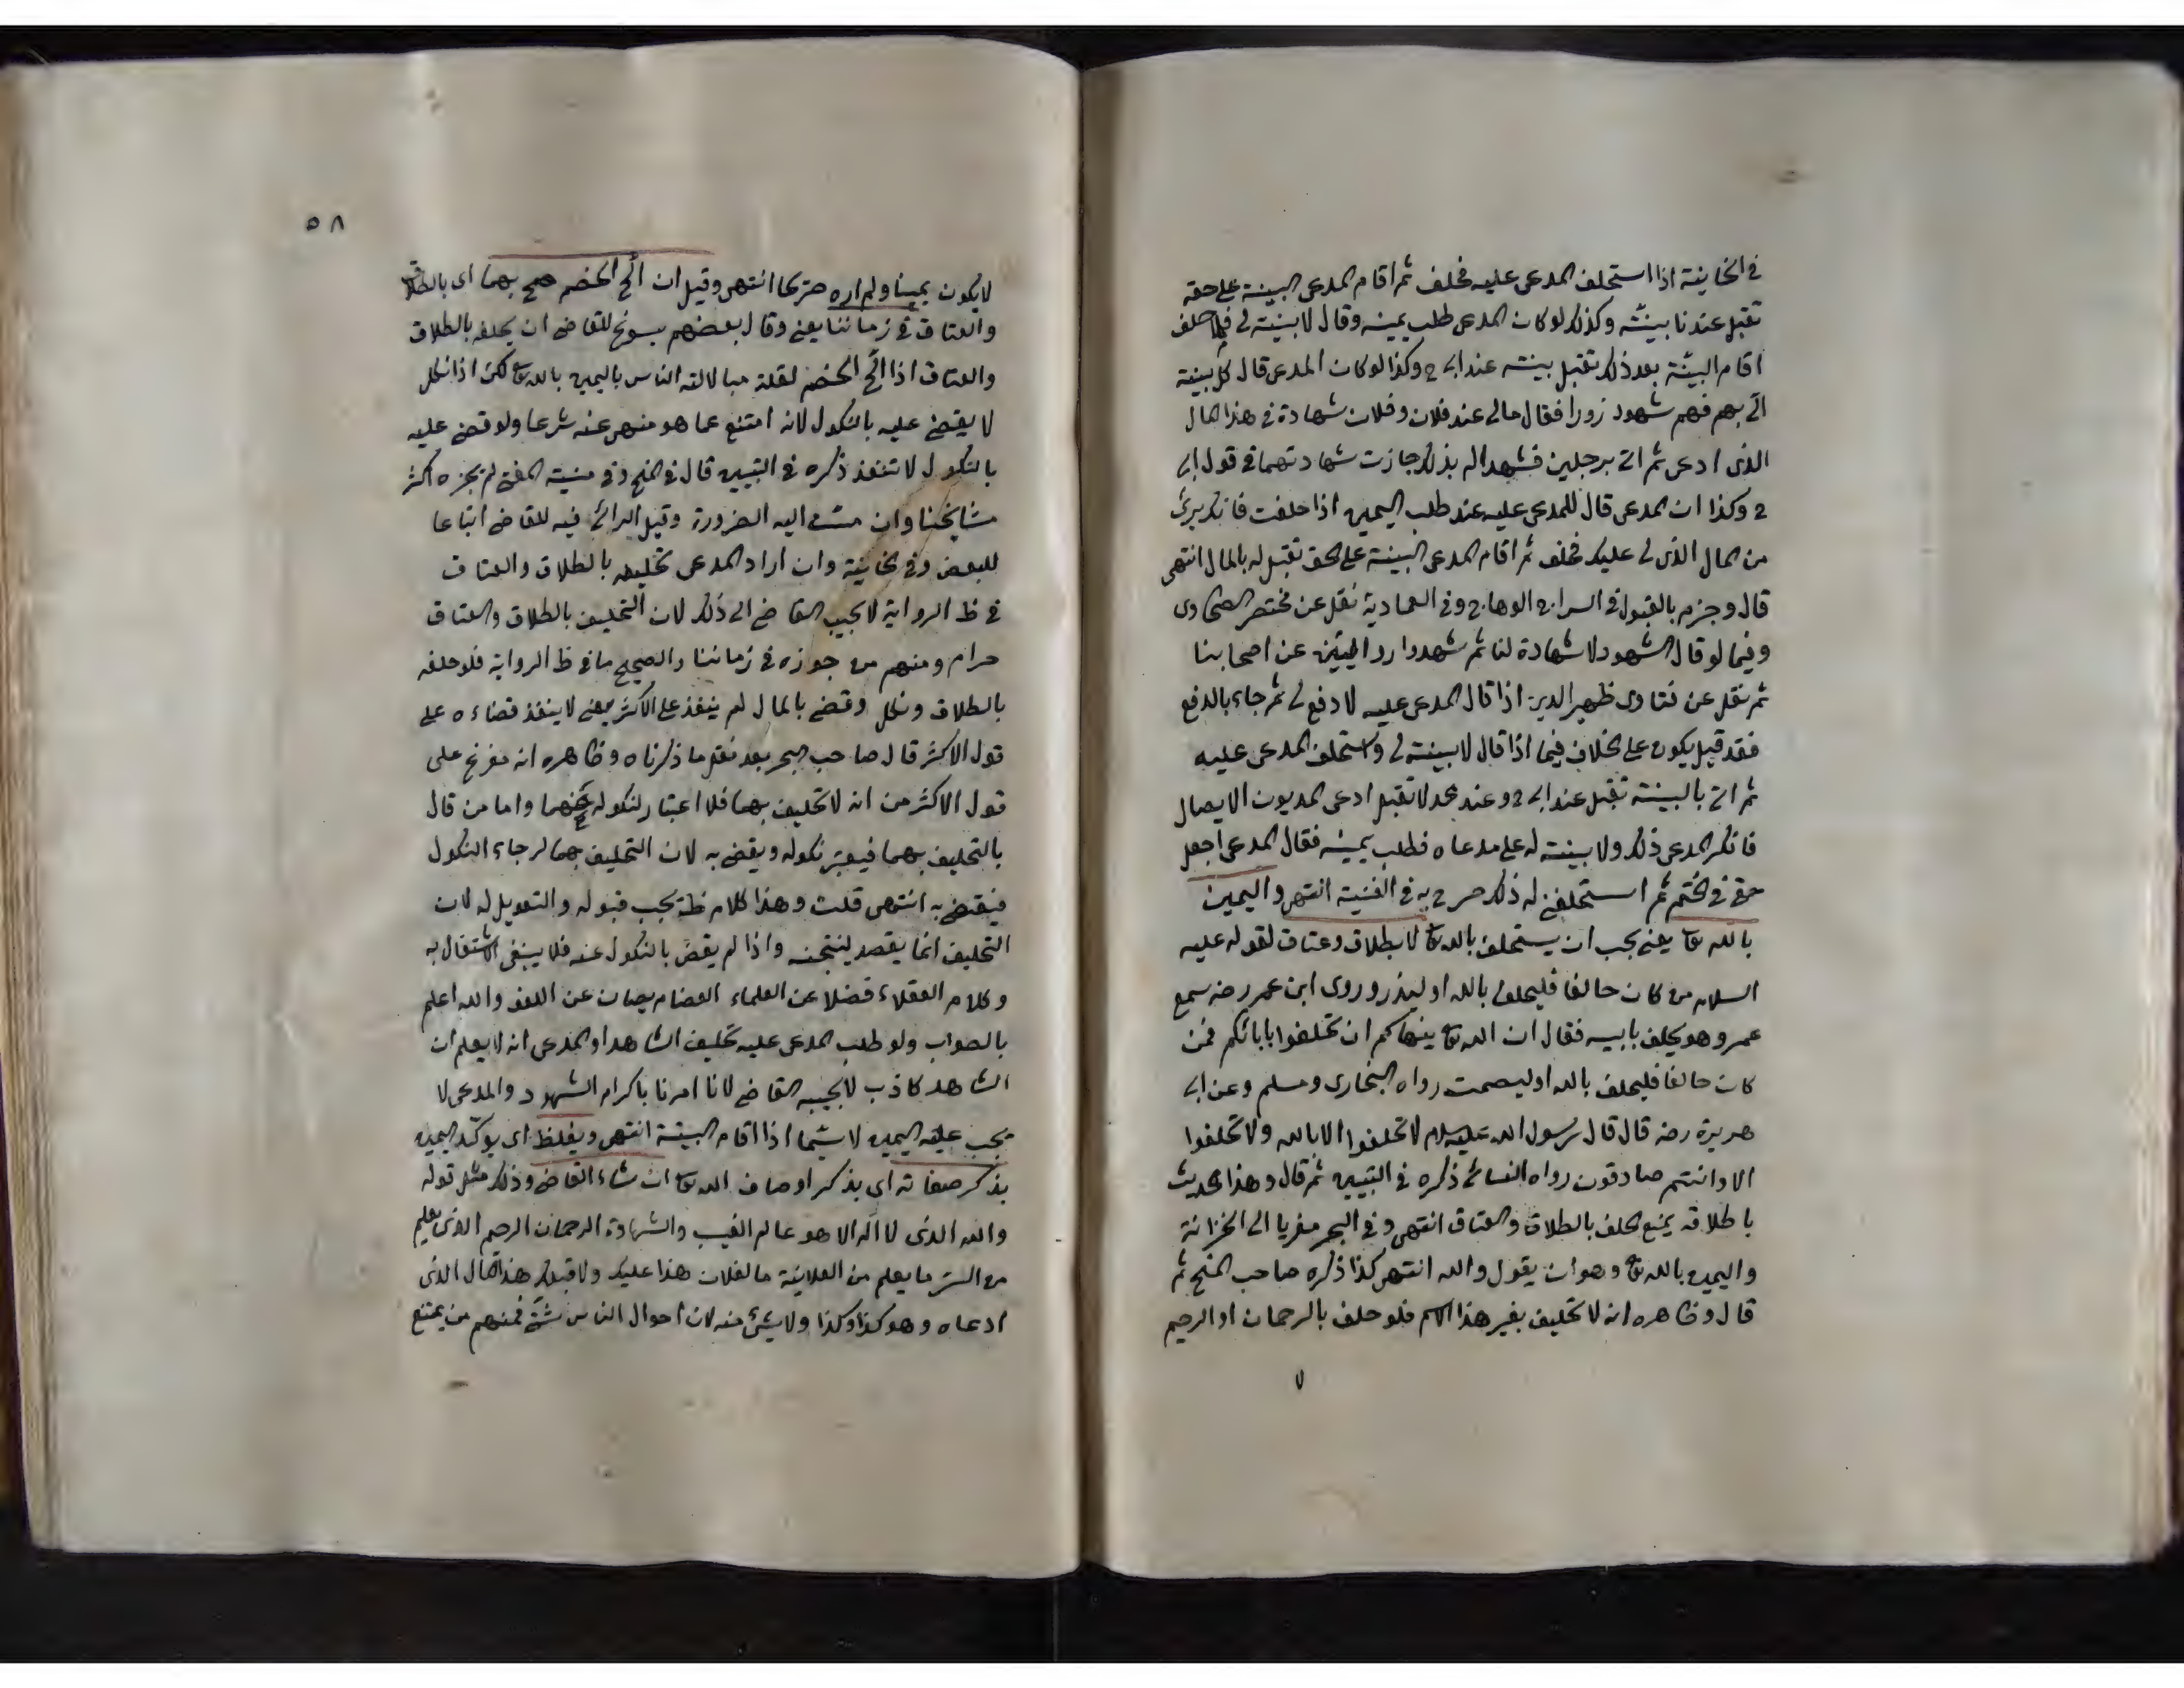 في الخانية اذا استحلف المدعى عليه فحلف ثم اقام المدعى البينة على حقه
تقبل عندنا بينته وكذلك لو كان المدعى طلب يمينه وقال لا بينة لى فلما حلف
اقام البينة بعد ذلك تقبل بينته عند ابى ح وكذا لو كان المدعى قال كل بينة
اتى بهم فهم شهود زورا فقال مالى عند فلان وفلان شهادة في هذا المال
الذى ادعى ثم اتى برجلين فشهدا له بذلك جازت شهادتهما في قول ابى
ح وكذا ان المدعى قال للمدعى عليه عند طلب اليمين اذا حلفت فانك برئ
من المال الذى لى عليك فحلف ثم اقام المدعى البينة على الحق تقبل له بالمال انتهى
قال وجزم بالقبول في السراج الوهاج وفي العمادية نقل عن مختصر الطحاوى
وفيما لو قال الشهود لا شهادة لنا ثم شهدوا عن اصحابنا
ثم نقل عن فتاوى ظهير الدين اذا قال المدعى عليه لا دفع لى ثم جاء بالدفع
فقد قيل يكون على الخلاف فيما اذا قال لا بينة لى واستحلف المدعى عليه
ثم اتى بالبينة تقبل عند ابى ح وعند محمد لا تقبل ادعى المديون الايصال
فانكر المدعى ذلك ولا بينة له على مدعاه فطلب يمينه فقال المدعى اجعل
حقى في الختم ثم استحلفنى له ذلك صرح به في القنية انتهى واليمين
بالله تعا يعنى يجب ان يستحلف بالله تعا لا بطلاق وعتاق لقوله عليه
السلام من كان حالفا فليحلف بالله او ليذر وروى ابن عمر رضه سمع
عمر وهو يحلف بابيه فقال ان الله تعا ينهاكم ان تحلفوا بابائكم فمن
كان حالفا فليحلف بالله او ليصمت رواه البخارى ومسلم وعن ابى
هريرة رضه قال قال رسول الله عليه السلام لا تحلفوا الا بالله ولا تحلفوا
الا وانتم صادقون رواه النسائى ذكره في التبيين ثم قال وهذا الحديث
باطلاقه يمنع الحلف بالطلاق والعتاق انتهى وفي البحر معزيا الى الخزانة
واليمين بالله تعا وهو ان يقول والله انتهى كذا ذكره صاحب المنح ثم
قال وظاهره انه لا تحليف بغير هذا الاسم فلو حلف بالرحمان او الرحيم
٥٨
لا يكون يمينا ولم اره صريحا انتهى وقيل ان الح الخصم صح بهما اى بالطلاق
والعتاق في زماننا يعنى وقال بعضهم يسوغ للقاضى ان يحلف بالطلاق
والعتاق اذا الح الخصم لقلة مبالالة الناس باليمين بالله تعا لكن اذا نكل
لا يقضى عليه بالنكول لانه امتنع عما هو منهى عنه شرعا ولو قضى عليه
بالنكول لا تنفذ ذكره في التبيين قال في المنح وفي منية المفتى لم يجزه اكثر
مشايخنا وان مست اليه الضرورة وقيل الرائ فيه للقاضى اتباعا
للبعض وفي الخانية وان اراد المدعى تحليفه بالطلاق والعتاق
في ظ الرواية لا يجيب القاضى الى ذلك لان التحليف بالطلاق والعتاق
حرام ومنهم من جوزه في زماننا والصحيح ما في ظ الرواية فلو حلفه
بالطلاق ونكل وقضى بالمال لم ينفذ على الاكثر يعنى لا ينفذ قضاءه على
قول الاكثر قال صاحب البحر بعد نقل ما ذكرناه وظاهره انه مفرع على
قول الاكثر من ان لا تحليف بهما فلا اعتبار لنكوله عنهما واما من قال
بالتحليف بهما فيعتبر نكوله ويقضى به لان التحليف بهما لرجاء النكول
فيقضى به انتهى قلت وهذا كلام ظ يجب قبوله والتعويل له لان
التحليف انما يقصد لنتيجته واذا لم يقض بالنكول عنه فلا ينبغى الاشتغال به
وكلام العقلاء فضلا عن العلماء العضام يصان عن اللغو والله اعلم
بالصواب ولو طلب المدعى عليه تحليف الشاهد او المدعى انه لا يعلم ان
الشاهد كاذب لا يجيبه القاضى لانا امرنا باكرام الشهود والمدعى لا
يجب عليه اليمين لا سيما اذا اقام البينة انتهى ويغلظ اى يوكد اليمين
بذكر صفاته اى بذكر اوصاف الله تعا ان شاء القاضى وذلك مثل قوله
والله الذى لا اله الا هو عالم الغيب والشهادة الرحمان الرحيم الذى يعلم
من السر ما يعلم من العلانية ما لفلان هذا عليك ولا قبلك هذا المال الذى
ادعاه وهو كذا وكذا ولا شئ منه لان احوال الناس شتى فمنهم من يمتنع